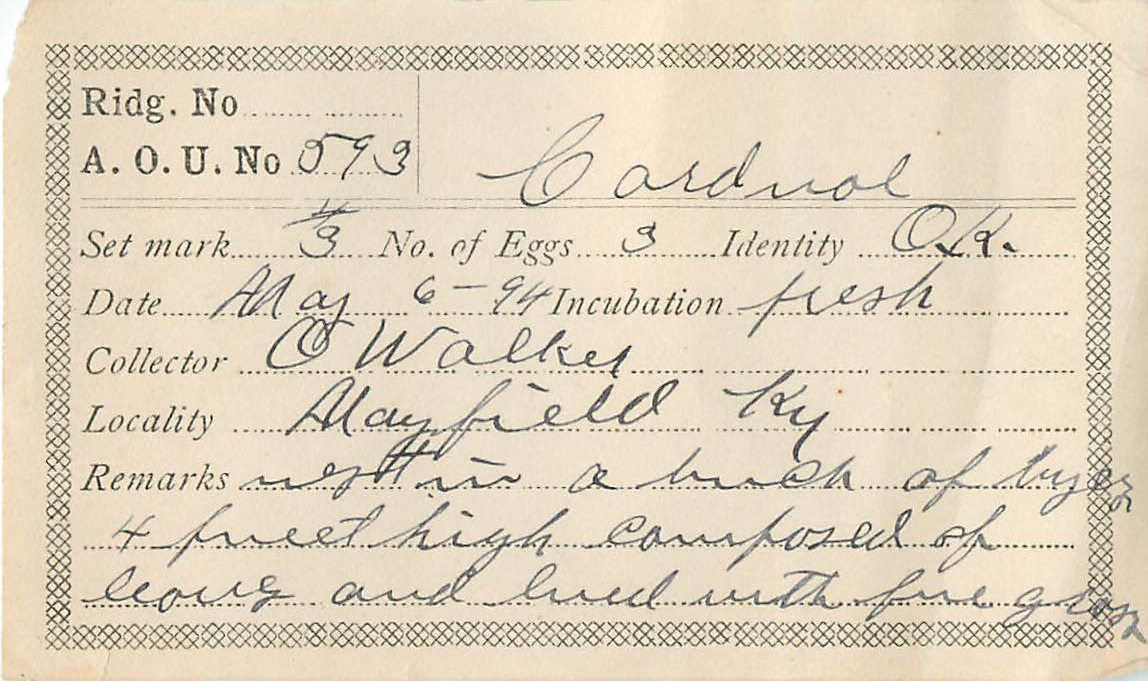 Ridg. No
A. O. U. No 593
Cardnal
Set mark 4/3 No. of Eggs 3 Identity O.K.
Date May 6-94 Incubation fresh
Collector C Walker
Locality Mayfield Ky
Remarks nest in a buch of
4 freet high composed of
leavs and lined with fine grass